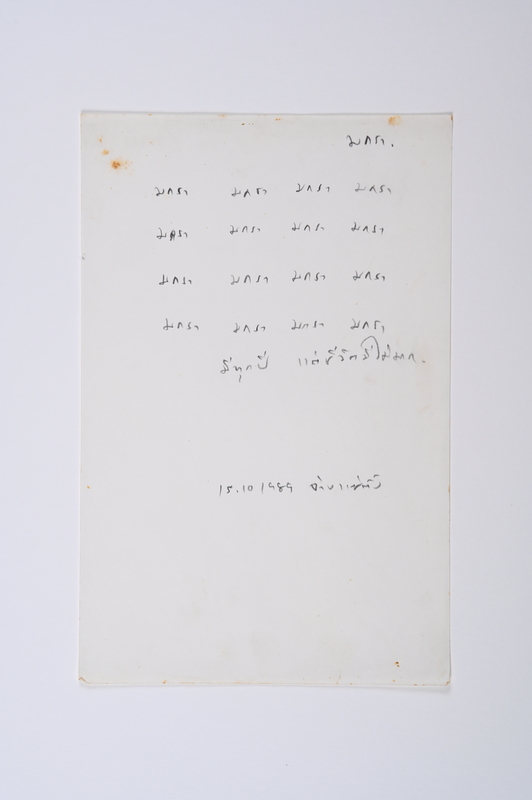 มกรา.
มกรา มกรา มกรา มกรา
มกรา มกรา มกรา มกรา
มกรา มกรา มกรา มกรา
มกรา มกรา มกรา มกรา
มีทุกปี แต่ชีวิตมีไม่มาก.
15.10 1989 จ่าง แซ่ตั้ง